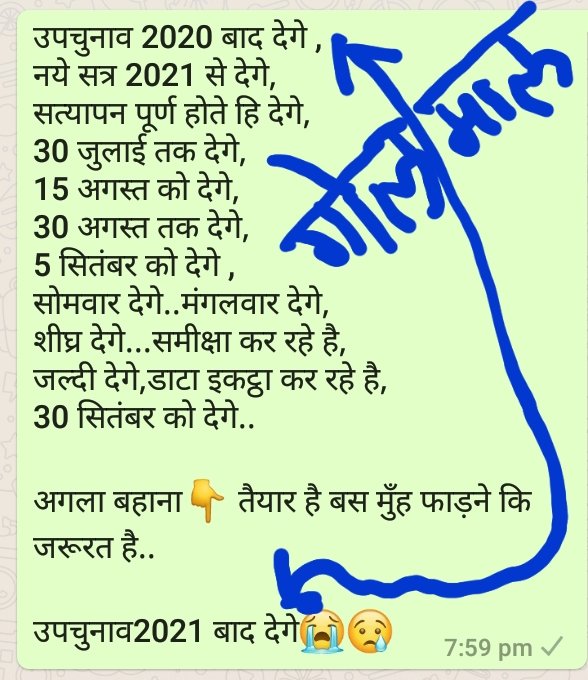 उपचुनाव 2020 बाद देगे ,
नये सत्र 2021 से देगे,
सत्यापन पूर्ण होते हि देगे,
30 जुलाई तक देगे,
15 अगस्त को देगे,
30 अगस्त तक देगे,
5 सितंबर को देगे ,
सोमवार देगे..मंगलवार देगे,
शीघ्र देगे...समीक्षा कर रहे है,
जल्दी देगे,डाटा इकट्ठा कर रहे है,
30 सितंबर को देगे..
गोलमाल
अगला बहाना👇 तैयार है बस मुँह फाड़ने कि
जरूरत है..
उपचुनाव2021 बाद देगे😭😢
7:59 pm ✓